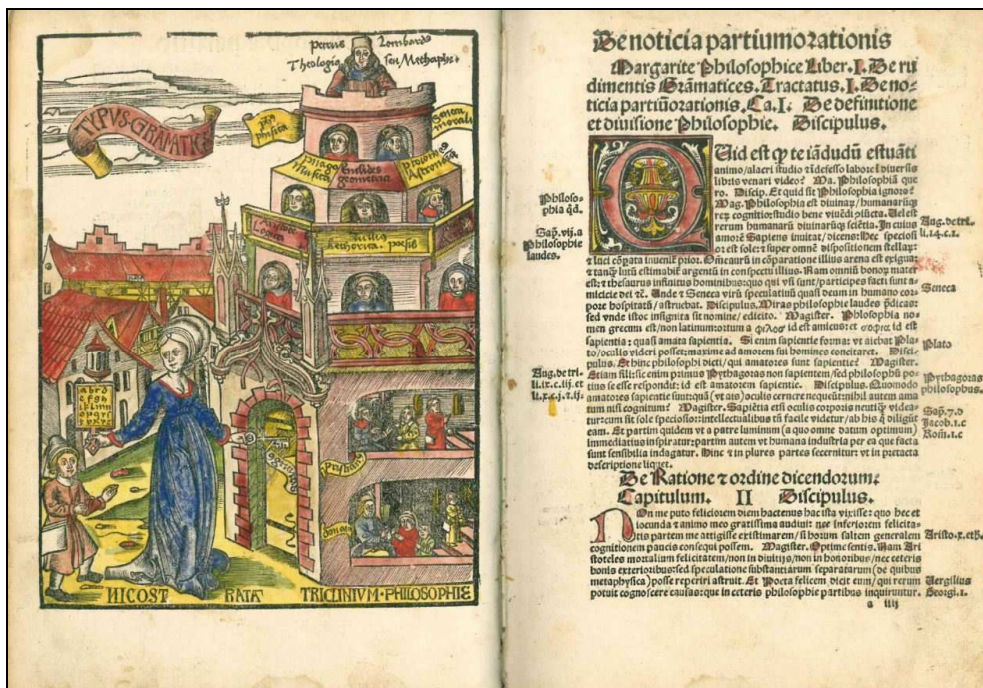 Petrus Lombardus
Theologia seu Methaphi
TYPVS GRAMATICE
phisica
Seneca morali
Musica
Euclides geometria
Astronoia
Logica
Tullius
Rethorica poesis
abcd
efgh
iklmn
opqrs
tvxyz
Priscian
Donatus
NICOST RATA TRICLINIVM PHILOSOPHIE
De noticia partiumorationis
Margarite Philosophice Liber.I.De ru
dimentis Grāmatices.Tractatus.I.De no-
ticia partiūorationis.Ca.I: De definitione
et diuisione Philosophie. Discipulus.
QUid est qȝ te iādudū estuāti
animo/alacri studio ⁊idefesso labore ī diuersis
libris venari video? Ma. Philosophiā que
ro. Discip. Et quid sit Philosophia ignoro?
Mag. Philosophia est diuinaꝝ/humanarūqȝ
reꝝ cognitio:studio bene viuēdi piūcta. Uel est
rerum humanarū diuinarūqȝ sciētia. In cuius
amorē Sapiens inuitat/dicens: Hec speciosi
or est sole: ⁊ super omnē dispositionem stellaꝝ:
⁊ luci cōpata inuenit̄ prior. Om̄e aurū in cōparatione illius arena est exigua:
⁊ tanqȝ lutū estimabit̄ argentū in conspectu illius. Nam omniū bonoꝝ mater
est: ⁊ thesaurus infinitus hominibus:quo qui vsi sunt/participes facti sunt a-
micicie dei ⁊c. Unde ⁊ Seneca virū speculatiuū quasi deum in humano cor-
pore hospitatū/astruebat. Discipulus. Miras philosophie laudes p̄dicas:
sed vnde istoc insignita sit nomine/edicito. Magister. Philosophia no-
men grecum est/non latinum:ortum a φιλος id est amicus: et σοφια id est
sapientia: quasi amata sapientia. Si enim sapientie forma: vt aiebat Pla-
to/oculis videri posset:maxime ad amorem sui homines concitaret. Disci-
pulus. Et hinc philosophi dicti/qui amatores sunt sapientie? Magister.
Etiam fili: sic enim primus Pythagoras non sapientem/sed philosophū po-
tius se esse respondit: id est amatorem sapientie. Discipulus. Quomodo
amatores sapientie sunt:quā (vt ais) oculis cernere nequeūt:nihil autem ama
tum nisi cognitum? Magister. Sapiētia etsi oculis corporis neutiqȝ videa-
tur:cum sit sole speciosior:intellectualibus tn̄ facile videtur/ab his q̄ diligūt
eam. Et partim quidem vt a patre luminum (a quo omne datum optimum)
immediatius inspiratur:partim autem vt humana industria per ea que facta
sunt sensibilia indagatur. Hinc ⁊ in plures partes secernitur: vt in pretacta
descriptione liquet.
De Ratione ⁊ ordine dicendorum:
Capitulum. II Discipulus.
NOn me puto feliciorem diem hactenus hac ista vixisse: quo hec et
iocunda ⁊ animo meo gratissima audiui: nec inferiorem felicita-
tis partem me attigisse existimarem/si horum saltem generalem
cognitionem paucis consequi possem. Magister. Optime sentis. Nam Ari
stoteles mortalium felicitatem/non in diuitijs/non in honoribus/nec ceteris
bonis exterioribus:sed speculatione substantiarum separatarum (de quibus
metaphysica) posse reperiri astruit. Et Poeta felicem dicit eum/qui rerum
potuit cognoscere causas:que in ceteris philosophie partibus inquiruntur.
a iiij
Philoso-
phia qd.
Sap. vij. a
Philosophie
laudes.
Aug. de tri-
li. ix. c. iij. et
Aug. de tri.
li. 14. c. 1.
Seneca
Plato
Pythagoras
philosophus.
Sap. 7. d
Jacob. 1. c
Rom. 1. c
Aristo. x. eth.
Uergilius
Georgi. 1.